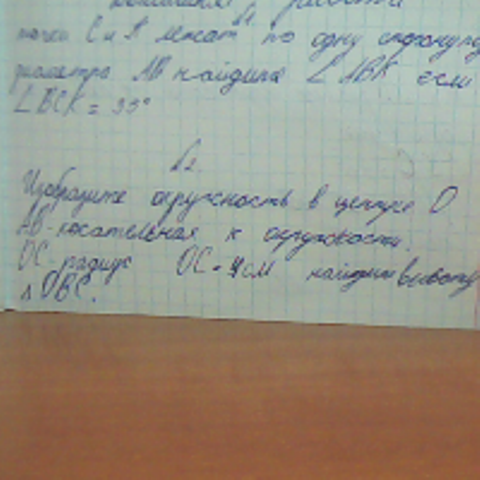 работа
точки С и К лежат по одну сторону
диаметра АВ найдите ∠ АВК если
∠ ВСК = 35°
Изобразите окружность в центре О
АВ-касательная к окружности.
ОС-радиус ОС = 4см найдите высоту
△ ОВС.